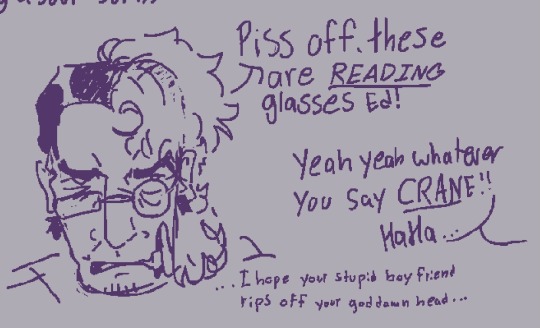 Piss off. these
are READING
glasses Ed!
Yeah yeah whatever
You say CRANE!!
HaHa...
...I hope your stupid boyfriend
rips off your goddamn head...